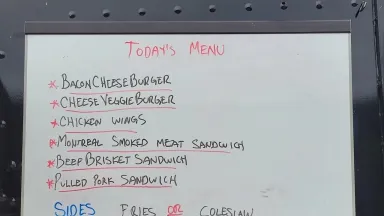 TODAY'S MENU
* BACON CHEESE BURGER
* CHEESE VEGGIE BURGER
* CHICKEN WINGS
* MONTREAL SMOKED MEAT SANDWICH
* BEEF BRISKET SANDWICH
* PULLED PORK SANDWICH
SIDES FRIES OR COLESLAW